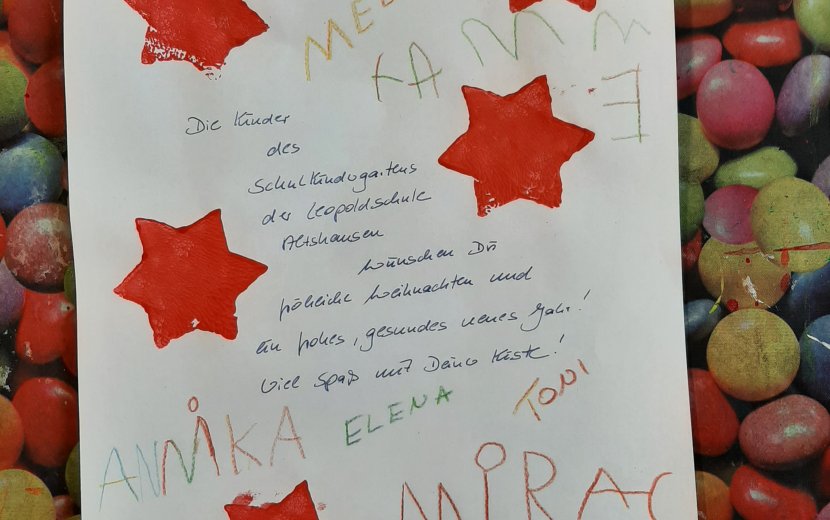 TAMME
Die Kinder
des
Schulkindergartens
der Leopoldschule
Altshausen
wünschen Dir
fröhliche Weihnachten und
ein frohes, gesundes neues Jahr!
Viel Spaß mit Deiner Kiste!
ANNIKA
ELENA
TONI
MIRAC